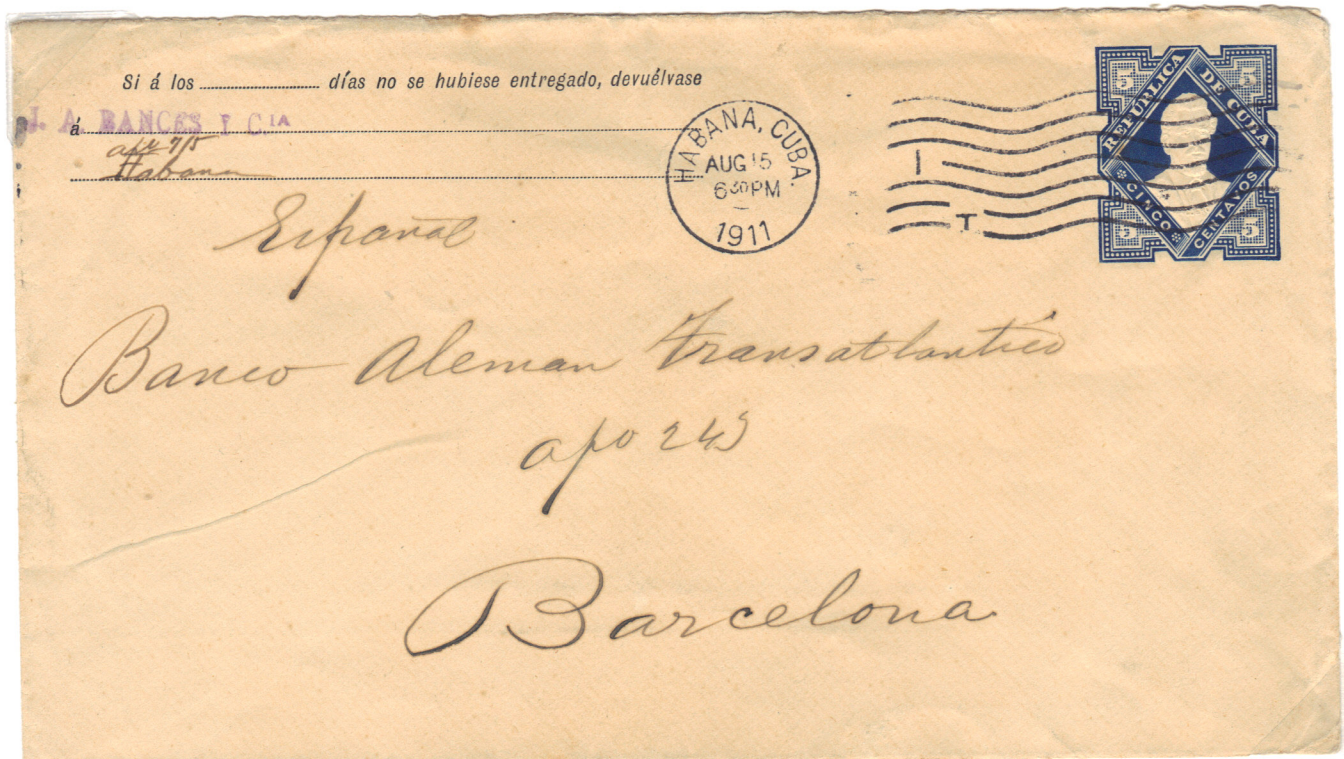 Si á los ........................ días no se hubiese entregado, devuélvase
á
J. A. BANCES Y CIA
apº 715
Habana
HABANA, CUBA.
AUG 15
6 30 PM
1911
I
T
REPÚBLICA DE CUBA
CINCO CENTAVOS
5 5
5 5
España
Banco Aleman Transatlantico
apo 245
Barcelona